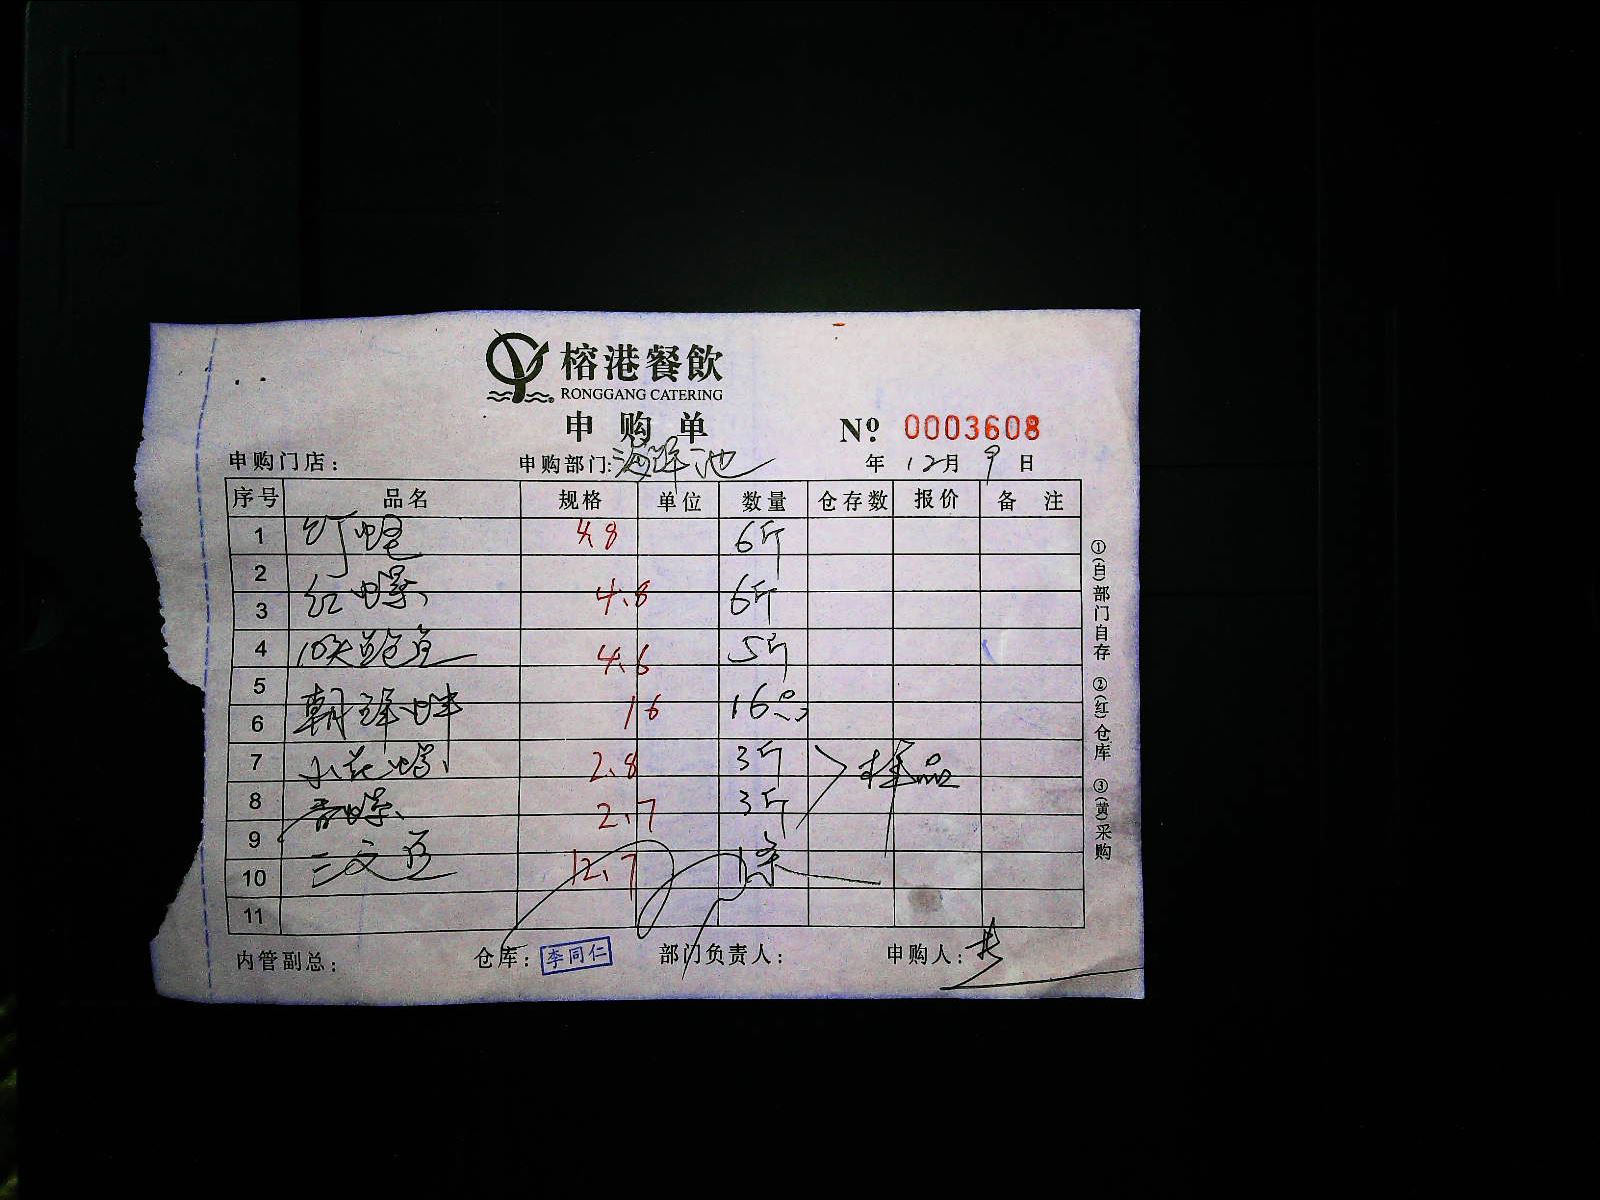 榕港餐飲
RONGGANG CATERING
申购单
№ 0003608
申购门店：
申购部门：海鲜池
年 12月 9日
序号 品名 规格 单位 数量 仓存数 报价 备注
1 4.8 6斤
2
3 红螺 4.8 6斤
4 10头鲍鱼 4.6 5斤
5
6 朝鲜蚌 16 16
7 小花螺 2.8 3斤 样品
8 香螺 2.7 3斤
9
10 三文鱼 12.7 1条
11
内管副总：
仓库：李同仁
部门负责人：
申购人：
①(白)部门自存 ②(红)仓库 ③(黄)采购